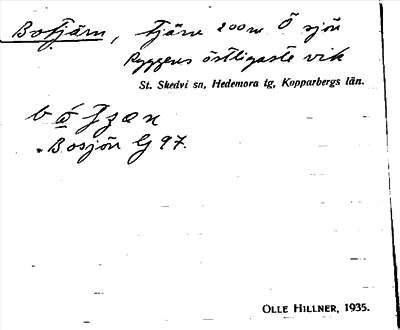 Botjärn, tjärn 200m Ö sjön
Ryggens östligaste vik
St. Skedvi sn, Hedemora tg, Kopparbergs län.
Bosjön G 97.
OLLE HILLNER, 1935.